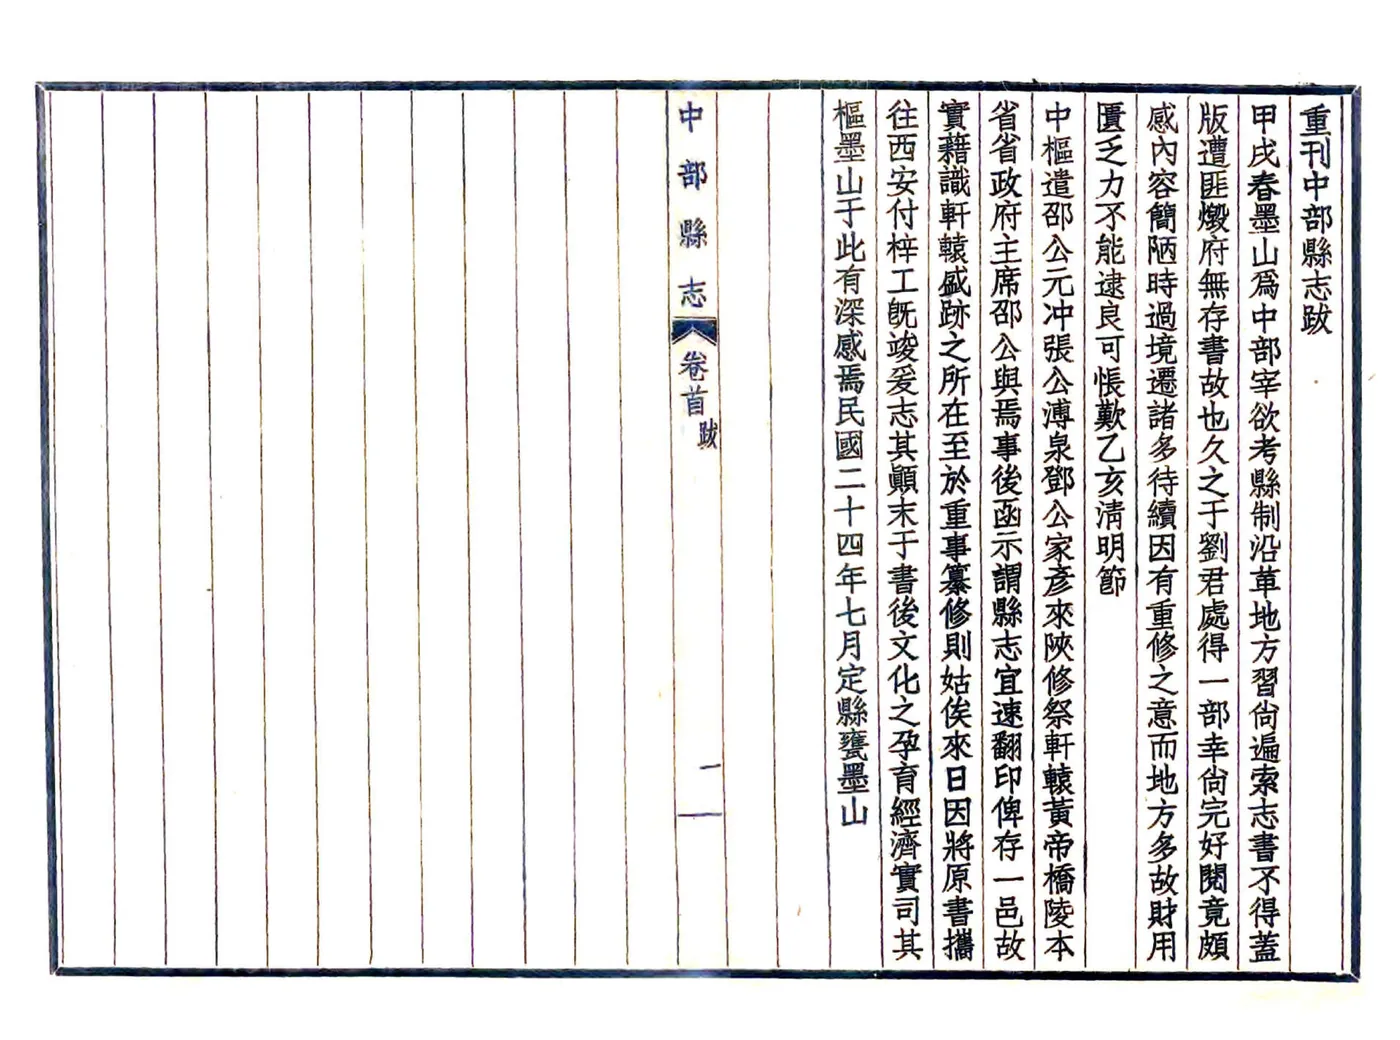 重刊中部縣志跋
甲戌春墨山爲中部宰欲考縣制沿革地方習尙遍索志書不得蓋
版遭匪燬府無存書故也久之于劉君處得一部幸尙完好閱竟頗
感內容簡陋時過境遷諸多待續因有重修之意而地方多故財用
匱乏力不能逮良可悵歎乙亥淸明節
中樞遣邵公元冲張公溥泉鄧公家彥來陝修祭軒轅黃帝橋陵本
省省政府主席邵公與焉事後函示謂縣志宜速翻印俾存一邑故
實藉識軒轅盛跡之所在至於重事纂修則姑俟來日因將原書攜
往西安付梓工旣竣爰志其顚末于書後文化之孕育經濟實司其
樞墨山于此有深感焉民國二十四年七月定縣甕墨山
中部縣志
卷首
跋
一